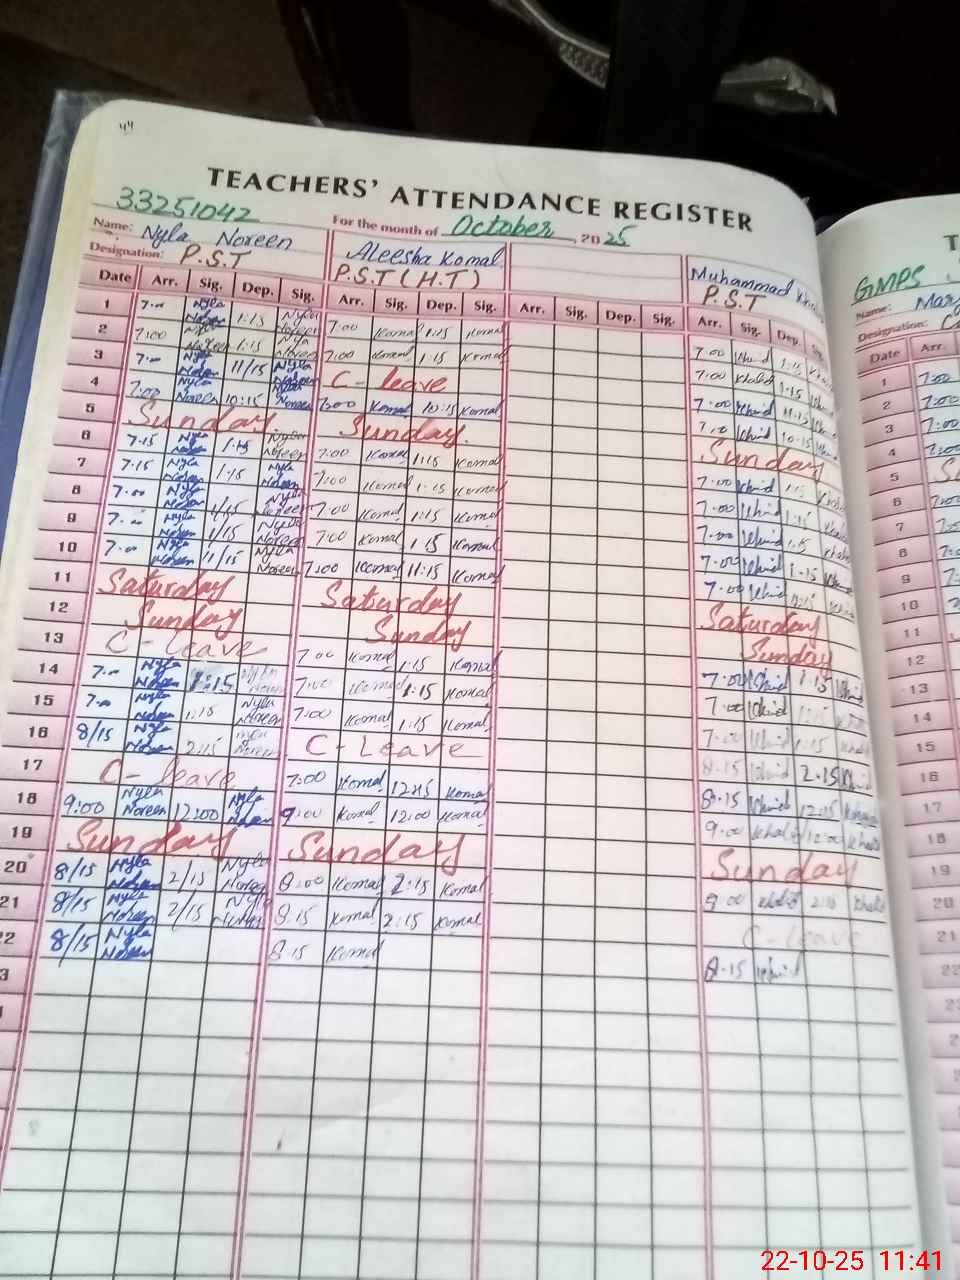 44
TEACHERS' ATTENDANCE REGISTER
33251042
For the month of October, 2025
Name: Nyla Noreen Aleesha Komal Muhammad
Designation: P.S.T P.S.T (H.T) P.S.T
Date Arr. Sig. Dep. Sig. Arr. Sig. Dep. Sig. Arr. Sig. Dep. Sig. Arr. Sig. Dep. Sig.
1 7:00 Nyla Noreen 1:15 Nyla Noreen 7:00 Komal 1:15 Komal 7:00 Khalid 1:15
2 7:00 Nyla Noreen 1:15 Nyla Noreen 7:00 Komal 1:15 Komal 7:00 Khalid 1:15
3 7:00 Nyla Noreen 11/15 Nyla Noreen C-leave 7:00 Khalid 11:15
4 7:00 Nyla Noreen 10:15 Nyla Noreen 7:00 Komal 10:15 Komal 7:00 Khalid 10:15
5 Sunday Sunday Sunday
6 7.15 Nyla Noreen 1:15 Nyla Noreen 7:00 Komal 1:15 Komal 7:00 Khalid 1:15
7 7.15 Nyla Noreen 1:15 Nyla Noreen 7:00 Komal 1:15 Komal 7:00 Khalid 1:15
8 7:00 Nyla Noreen 1/15 Nyla Noreen 7:00 Komal 1:15 Komal 7:00 Khalid 1:15
9 7:00 Nyla Noreen 1/15 Nyla Noreen 7:00 Komal 1:15 Komal 7:00 Khalid 1:15
10 7:00 Nyla Noreen 11/15 Nyla Noreen 7:00 Komal 11:15 Komal 7:00 Khalid 11:15
11 Saturday Saturday Saturday
12 Sunday Sunday Sunday
13 C-leave 7:00 Komal 1:15 Komal 7:00 Khalid 1:15 Khalid
14 7:00 Nyla Noreen 1:15 Nyla Noreen 7:00 Komal 1:15 Komal 7:00 Khalid 1:15
15 7:00 Nyla Noreen 1:15 Nyla Noreen 7:00 Komal 1:15 Komal 7:00 Khalid 1:15 Khalid
16 8/15 Nyla Noreen 2:15 Nyla Noreen C-Leave 8:15 Khalid 2:15 Khalid
17 C-leave 7:00 Komal 12:15 Komal 8:15 Khalid 12:15
18 9:00 Nyla Noreen 12:00 Nyla Noreen 9:00 Komal 12:00 Komal 9:00 Khalid 12:00 Khalid
19 Sunday Sunday Sunday
20 8/15 Nyla Noreen 2/15 Nyla Noreen 8:00 Komal 2:15 Komal 9:00 Khalid 2:15 Khalid
21 8/15 Nyla Noreen 2/15 Nyla Noreen 8:15 Komal 2:15 Komal C-leave
22 8/15 Nyla Noreen 8:15 Komal 8:15 Khalid
GMPS
Name:
Designation:
Date Arr.
1 7:00
2 7:00
3 7:00
4 7:00
5
6 7:00
7
8
9
10
11
12
13
14
15
16
17
18
19
20
21
22
22-10-25 11:41